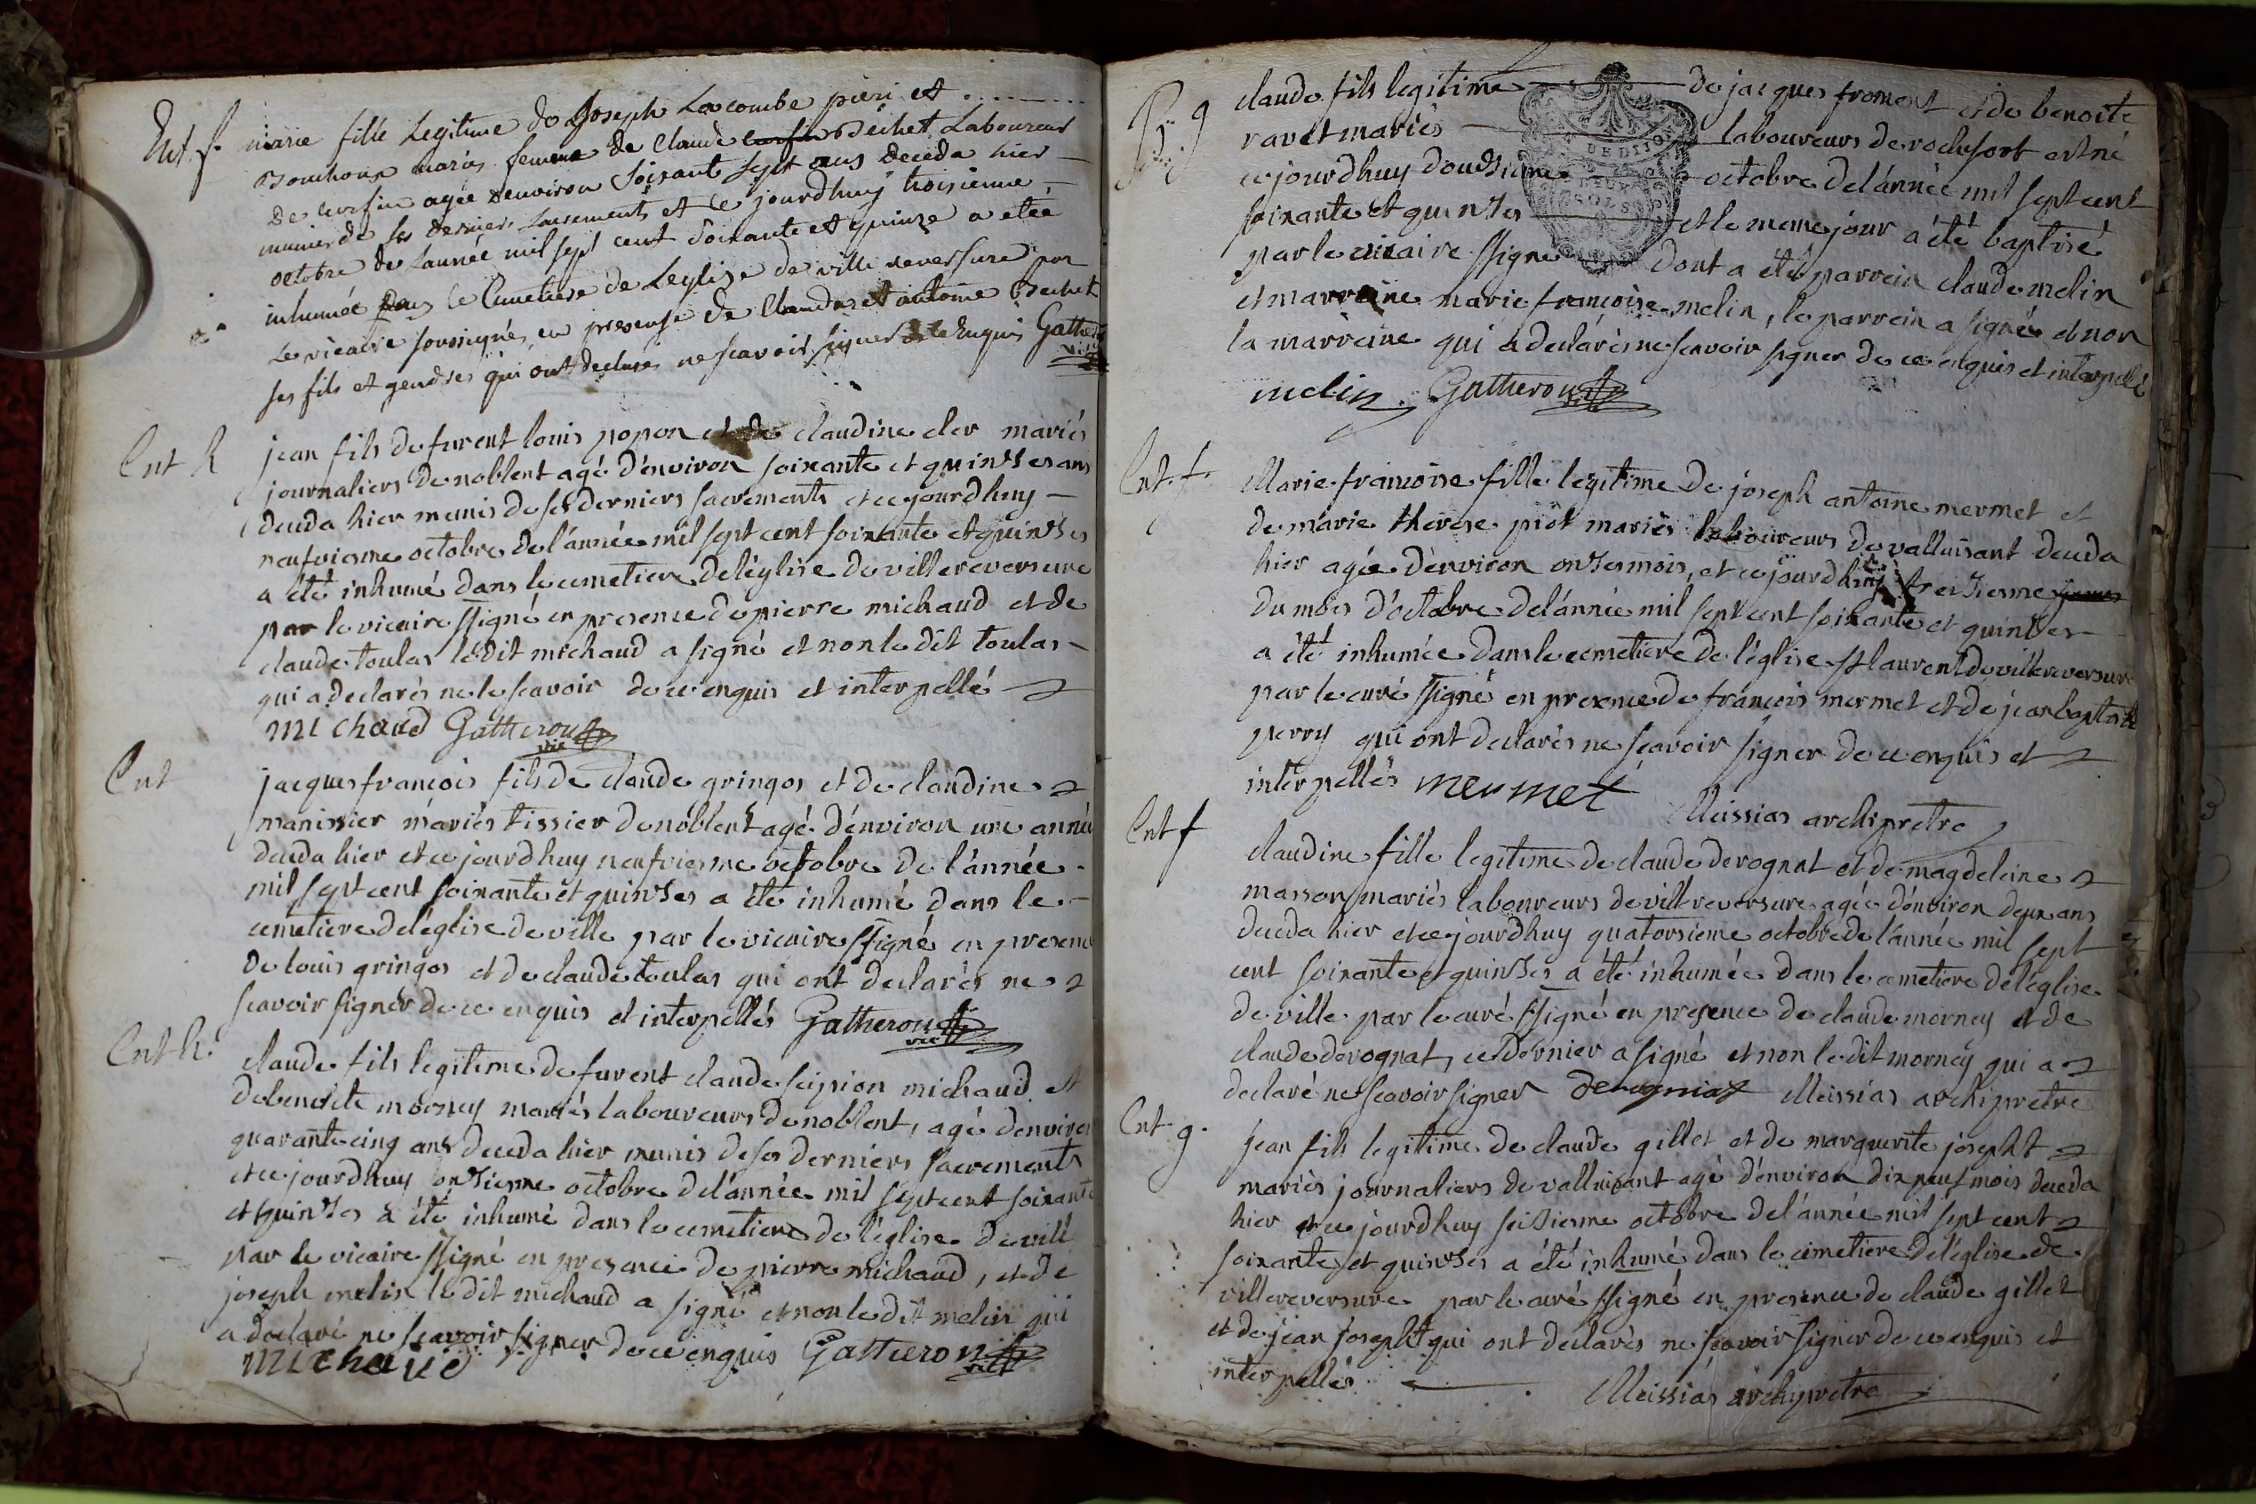 Ent. f. marie fille Legitime de Joseph Lacombe pieri et
Bouchoux mariés femme de Claude Bechet Laboureur
de agée denviron Soixante Sept ans deceda hier
munie de ses derniers sacrements et ce jourdhuy troisieme
octobre de Lannée mil sept cent Soixante et quinze a etée
inhumée dans le Cimetiere de Leglise de ville reversure par
Le vicaire soussigné en presense de Claude et antoine Bechet
ses fils et gendres qui ont declarés ne scavoir signer de ce Enquis Gatheron
vic
Ent h jean fils de furent louis popon et de claudine cler mariés
journaliers de noblent agé d'environ soixante et quinses ans
deceda hier munis de ses derniers sacrements et ce jourd huy
neufviesme octobre de l'année mil sept cent soixante et quinses
a été inhumé dans le cemetiere de l'église de villereversure
par le vicaire ssigné en presence de pierre michaud et de
claude toulas le dit michaud a signé et non le dit toulas
qui a declarés ne le scavoir de ce enquis et interpellé
michaud Gatheron
vic
Ent jacques francois fils de claude gringos et de claudine
manissier mariés tissier de noblent agé d'environ une année
deceda hier et ce jourd huy neufviesme octobre de l'année
mil sept cent soixante et quinses a été inhumé dans le
cemetiere de l'église de ville par le vicaire ssigné en presence
de louis gringos et de claude toulas qui ont declarés ne
scavoir signer de ce enquis et interpellés Gatheron
vic
Ent h. claude fils legitime de furent claude scipion michaud et
de benoite morney mariés laboureurs de noblent, agé denviron
quarante cinq ans deceda hier munis de ses derniers sacrements
et ce jourdhuy onsiesme octobre de l'année mil sept cent soixante
et quinses a été inhumé dans le cemetiere de l'église de vill
par le vicaire ssigné en presence de pierre michaud, et de
joseph melin le dit michaud a signé et non le dit melin qui
a declaré ne scavoir signer de ce enquis Gatheron
michaud vic
B g claude fils legitime de jacques froment et de benoite
ravet mariés laboureurs de rochefort est né
ce jourdhuy dousieme octobre de l'année mil sept cent
soixante et quinses et le meme jour a été baptisé
par le vicaire ssigné dont a été parrein claude melin
et marraine marie francoise melin, le parrein a signé et non
la marreine qui a declarés ne scavoir signer de ce enquis et interpellé
melin Gatheron
DE DIJON
SOLS
Ent. f. Marie francoise fille legitime de joseph antoine mermet et
de marie therese piot mariés laboureurs de valluisant deceda
hier agée d'environ onses mois, et ce jourdhuy treisiesme
du mois d'octobre de l'année mil sept cent soixante et quinses
a été inhumée dans le cemetiere de l'église st laurent de villereversure
par le curé ssigné en presence de francois mermet et de jean baptiste
perry qui ont declarés ne scavoir signer de ce enquis et
interpellés mermet Meissias archipretre
Ent f claudine fille legitime de claude derognat et de magdeleine
masson mariés laboureurs de villereversure agée d'environ deux ans
deceda hier et ce jourdhuy quatorsieme octobre de l'année mil sept
cent soixante et quinses a été inhumée dans le cemetiere de l'église
de ville par le curé ssigné en presence de claude morney et de
claude derognat, ce dernier a signé et non le dit morney qui a
declaré ne scavoir signer derognat Meissias archipretre
Ent. g. jean fils legitime de claude gillet et de marguerite josepht
mariés journaliers de valluisant agé d'environ dix neuf mois deceda
hier et ce jourdhuy seisiesme octobre de l'année mil sept cent
soixante et quinses a été inhumé dans le cimetiere de l'église de
villereversure par le curé ssigné en presence de claude gillet
et de jean josepht qui ont declarés ne scavoir signer de ce enquis et
interpellés
Meissias archipretre